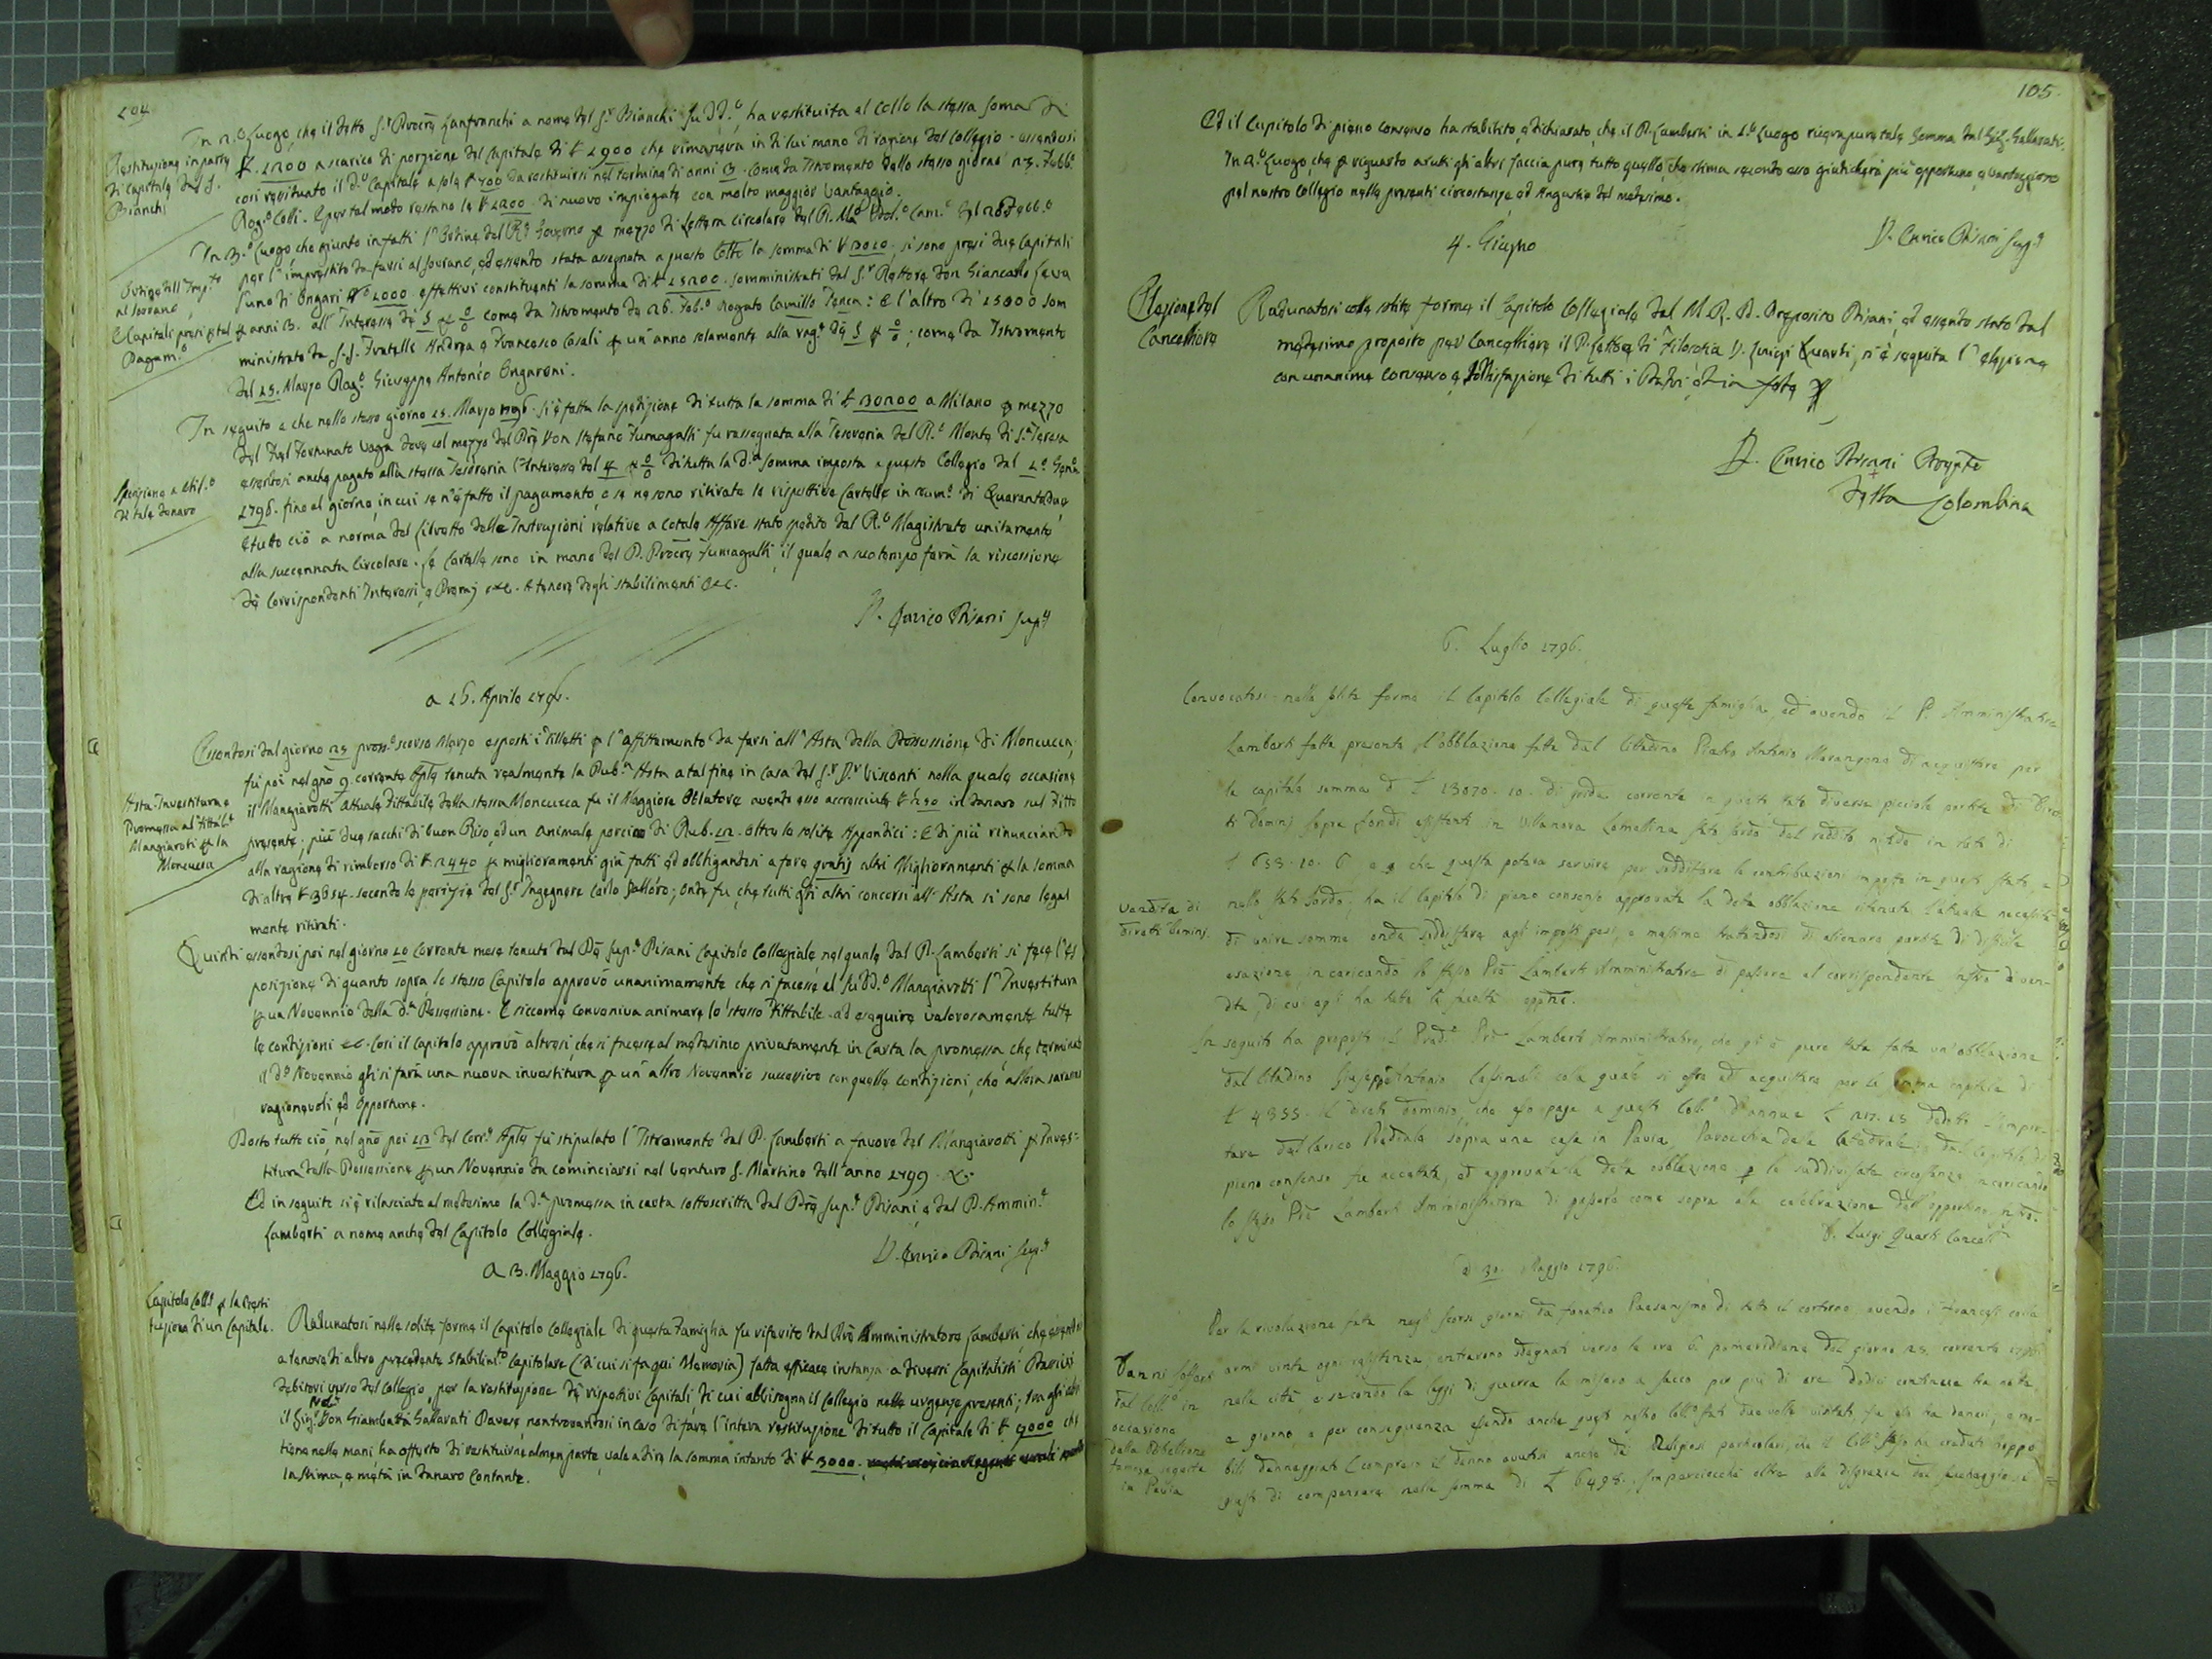 104
In 2.º Luogo, che il detto S.r Procre Lanfranchi a nome del S.r Bianchi Su DD.º, ha restituita al Collo la stessa soma di
Restituzione in parte
di capitale del S.
Bianchi
£. 2200 a scarico di porzione del Capitale di £ 2900 che rimaneva in di lui mano di ragione del Collegio - essendosi
così restituato il d.º Capitale a sole £ 700 da restituirsi nel termine di anni 3. come da Istromento dello stesso giorno 23. Febb.º
Rog.º Colli. E per tal modo restano le £ 2200. di nuovo impiegate con molto maggior vantaggio.
In 3.º Luogo, che giunto in fatti l'Ordine del R.º Governo per mezzo di Lettera circolare del R. Mag.º Cam.º del 28 Febb.º
Ordine dell'Imp.to
al Sovrano,
e Capitali presi per tal
Pagam.º
per l'imprestito da farsi al Sovrano, ed essendo stata assegnata a questo Collº la somma di £ 30200, si sono presi due Capitali
l'uno di Ongari Nº 1000 effettivi constituenti la somma di £ 15200. somministrati dal S.r Rettore Don Giancarlo Seva
per anni 3. all'Interesse de 5 per 0/0 come da Istromento de 26. Feb.º rogato Camillo Tenca: E l'altro di 15000 som
ministrato da S.S. Fratelli Andrea e Francesco Casali per un'anno solamente alla rag.e de 5 per 0/0, come da Istromento
del 15. Marzo Rog.º Giuseppe Antonio Ongaroni.
In seguito a che nello stesso giorno 15. Marzo 1796. si è fatta la spedizione di tutta la somma di £ 30200 a Milano per mezzo
del Fral Fortunato Vaga dove col mezzo del Pre Don Stefano Fumagalli fu rassegnata alla Tesoreria del R.º Monte di S.ta Teresa
Spedizione a Mil.º
di tale Denaro
essendosi anche pagato alla stessa Tesoreria l'Interesse del 4 per 0/0 di tutta la d.a somma imposta a questo Collegio dal 1.º Gen.º
1796. fino al giorno, in cui se n'è fatto il pagamento, e se ne sono ritirate le rispettive Cartelle in num.º di Quarantadue,
E tutto ciò a norma del Libretto delle Instruzioni relative a cotale Affare stato spedito dal R.º Magistrato unitamente
alla succennata Circolare. Le Cartelle sono in mano del P. Procre Fumagalli, il quale a suo tempo farà la riscossione
de Corrispondenti Interessi, e Premj etc. A tenore degli stabilimenti etc.
D. Enrico Pisani Sup.e
a 16. Aprile 1796.
Essendosi dal giorno 25 pross.º scorso Marzo esposti i Biglietti per l'affittamento da farsi all'Asta della Possessione di Moncucca,
fù poi nel gno 9. corrente Aple tenuta realmente la Pub.a Asta a tal fine in casa del S.r D.r Visconti nella quale occasione
Asta. Investitura e
Promessa al Fittab.e
Mangiaroti per la
Moncucca
il Mangiarotti attuale Fittabile della stessa Moncucca fu il Maggiore Oblatore avendo esso accresciute £ 120 in danaro sul Fitto
presente, più due sacchi di buon Riso, ed un animale porcino di Rub. 12. oltre le solite Appendici: E di più rinunciando
alla ragione di rimborso di £. 2440 per miglioramenti già fatti ed obbligandosi a fare gratis altri Miglioramenti per la somma
di altre £ 3654. secondo la perizia del S.r Ingegnere Carlo Galloro; onde fu, che tutti gli altri concorsi all'Asta si sono legal
mente ritirati.
Quindi essendosi poi nel giorno 10 corrente mese tenuto dal Pre Sup.e Pisani Capitolo Collegiale, nel quale dal P. Lamberti si fece l'es
posizione di quanto sopra, lo stesso Capitolo approvò unanimamente che si facesse al sud.º Mangiarotti l'Investitura
per un Novennio della d.a Possessione. E siccome conveniva animare lo stesso Fittabile ad eseguire valorosamente tutte
le condizioni etc. Così il Capitolo approvò altresì, che si facesse al medesimo privatamente in Carta la promessa, che terminato
il d.º Novennio gli si farà una nuova investitura per un altro Novennio successivo con quelle condizioni, che allora saranno
ragionevoli, ed opportune.
Posto tutto ciò, nel gno poi 13 del Corr.e Aple fu stipulato l'Istromento dal P. Lamberti a favore del Mangiarotti per Inves-
titura della Possessione per un Novennio da cominciarsi nel venturo S. Martino dell'anno 1799.
Ed in seguito si è rilasciata al medesimo la d.a promessa in carta sottoscritta dal Pre Sup.e Pisani, e dal P. Ammin.e
Lamberti a nome anche del Capitolo Collegiale.
D. Enrico Pisani Sup.e
a 3. Maggio 1796.
Capitolo Coll.e per la Resti
tuzione di un Capitale.
Radunatosi nelle solite forme il Capitolo Collegiale di questa Famiglia fu riferito dal Pre Amministratore Lamberti, che essendosi
a tenore di altro precedente stabilim.to Capitolare (di cui si fa qui Memoria) fatta efficace instanza a diversi Capitalisti Passivi
debitori verso del Collegio, per la restituzione de rispettivi Capitali, di cui abbisogna il Collegio nelle urgenze presenti; tra gli altri
il Sig.r Don Giambatta Gallarati Pavese, non trovandosi in caso di fare l'intera restituzione di tutto il Capitale di £ 9000 che
tiene nelle mani, ha offerto di restituirne almen parte, vale a dire la somma intanto di £ 3000.
la stima, e metà in danaro contante.
105.
Ed il Capitolo di pieno consenso ha stabilito, e dichiarato, che il P. Lamberti in 1.º Luogo riceva pure tale Somma dal Sig. Gallarati.
In 2.º Luogo, che per riguardo a tutti gli altri faccia pure tutto quello, che stima secondo esso giudicherà più opportuno, e vantaggioso
pel nostro Collegio nelle presenti circostanze ed Angustie del medesimo.
D. Enrico Pisani Sup.e
4. Giugno
Elezione del
Cancelliere
Radunatosi colle solite forme il Capitolo Collegiale dal M. R. P. Preposito Pisani, ed essendo stato dal
medesimo proposto per Cancelliere il P. Lettore di Filosofia D. Luigi Quarti, n'è seguita l'elezione
con unanime consenso e soddisfazione di tutti i Padri, ed in fede
D. Enrico Pisani Prep.to
della Colombina
6. Luglio 1796.
Convocatosi nelle solite forme il Capitolo Collegiale di questa famiglia, ed avendo il P. Amministratore
Lamberti fatta presente l'obblazione fatta dal Cittadino Pietro Antonio Marangone di acquistare per
la capitale somma di £ 13070. 10. di grida corrente in questo stato diverse picciole partite di Diret
ti Dominj sopra fondi esistenti in Villanova Lomellina stato Sardo del reddito nitido in tutto di
£ 653. 10. 6 e che questa poteva servire per soddisfare le contribuzioni imposte in questo stato, e
Vendita di
diretti Dominj.
nello stato Sardo; ha il Capitolo di pieno consenso approvata la detta obblazione attenuta l'attuale necessità
di unire somme onde soddisfare agl'imposti pesi, e massime trattandosi di alienare partite di difficile
esazione, incaricando lo stesso Pre Lamberti Amministratore di passare al corrispondente Instro di ven-
dita, di cui egli ha tutte le facoltà opptne.
In seguito ha proposto il Pred.º Pre Lamberti Amministratore, che gli è pure stata fatta un'obblazione
dal Cittadino Giuseppe Antonio colla quale si offre ad acquistare per la somma capitale di
£ 4355. il diretto dominio, che si paga a questo Coll.º d'annue £ 217. 15 dedotto l'impor-
tare del Carico Prediale sopra una casa in Pavia, Parocchia della Catedrale; e dal Capitolo di
pieno consenso fu accettata, ed approvata la detta obblazione per le suddivisate circostanze incaricando
lo stesso Pre Lamberti Amministratore di passare come sopra alla celebrazione dell'opportuno Instro.
D. Luigi Quarti Cancell.e
a 30. Maggio 1796.
Per la rivoluzione fatta negli scorsi giorni da fanatico Paesanismo di tutto il contorno, avendo i Francesi colla
Danni sofferti
dal Coll.º in
occasione
della Ribellione
famosa seguita
in Pavia
armi vinta ogni resistenza, entrarono sdegnati verso le ore 6. pomeridiane del giorno 25. corrente 1796
nella città e secondo le leggi di guerra la misero a sacco per più di ore Dodici continue tra notte,
e giorno, e per conseguenza essendo anche questo nostro Coll.º stato due volte visitato, si ha danni, e mo-
bili danneggiati (compreso il danno avutosi anche da Religiosi particolari, che il Coll.º stesso ha creduto troppo
giusto di compensare nella somma di £ 6498. Imperciocchè oltre alla disgrazia del Sacchaggio si